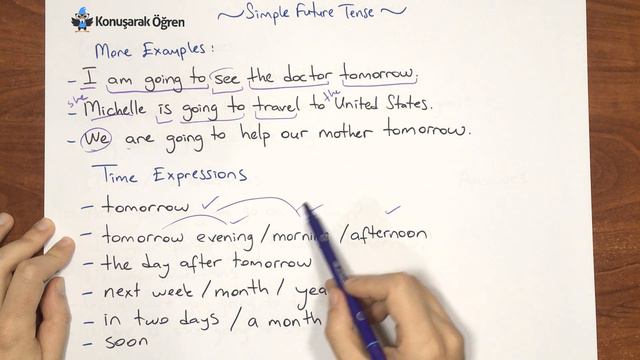 Konuşarak Öğren
~Simple Future Tense~
More Examples:
- I am going to see the doctor tomorrow.
she the
- Michelle is going to travel to United States.
- We are going to help our mother tomorrow.
Time Expressions
- tomorrow
- tomorrow evening / / afternoon
- the day after tomorrow
- next week / month /
- in two days / a month
- soon